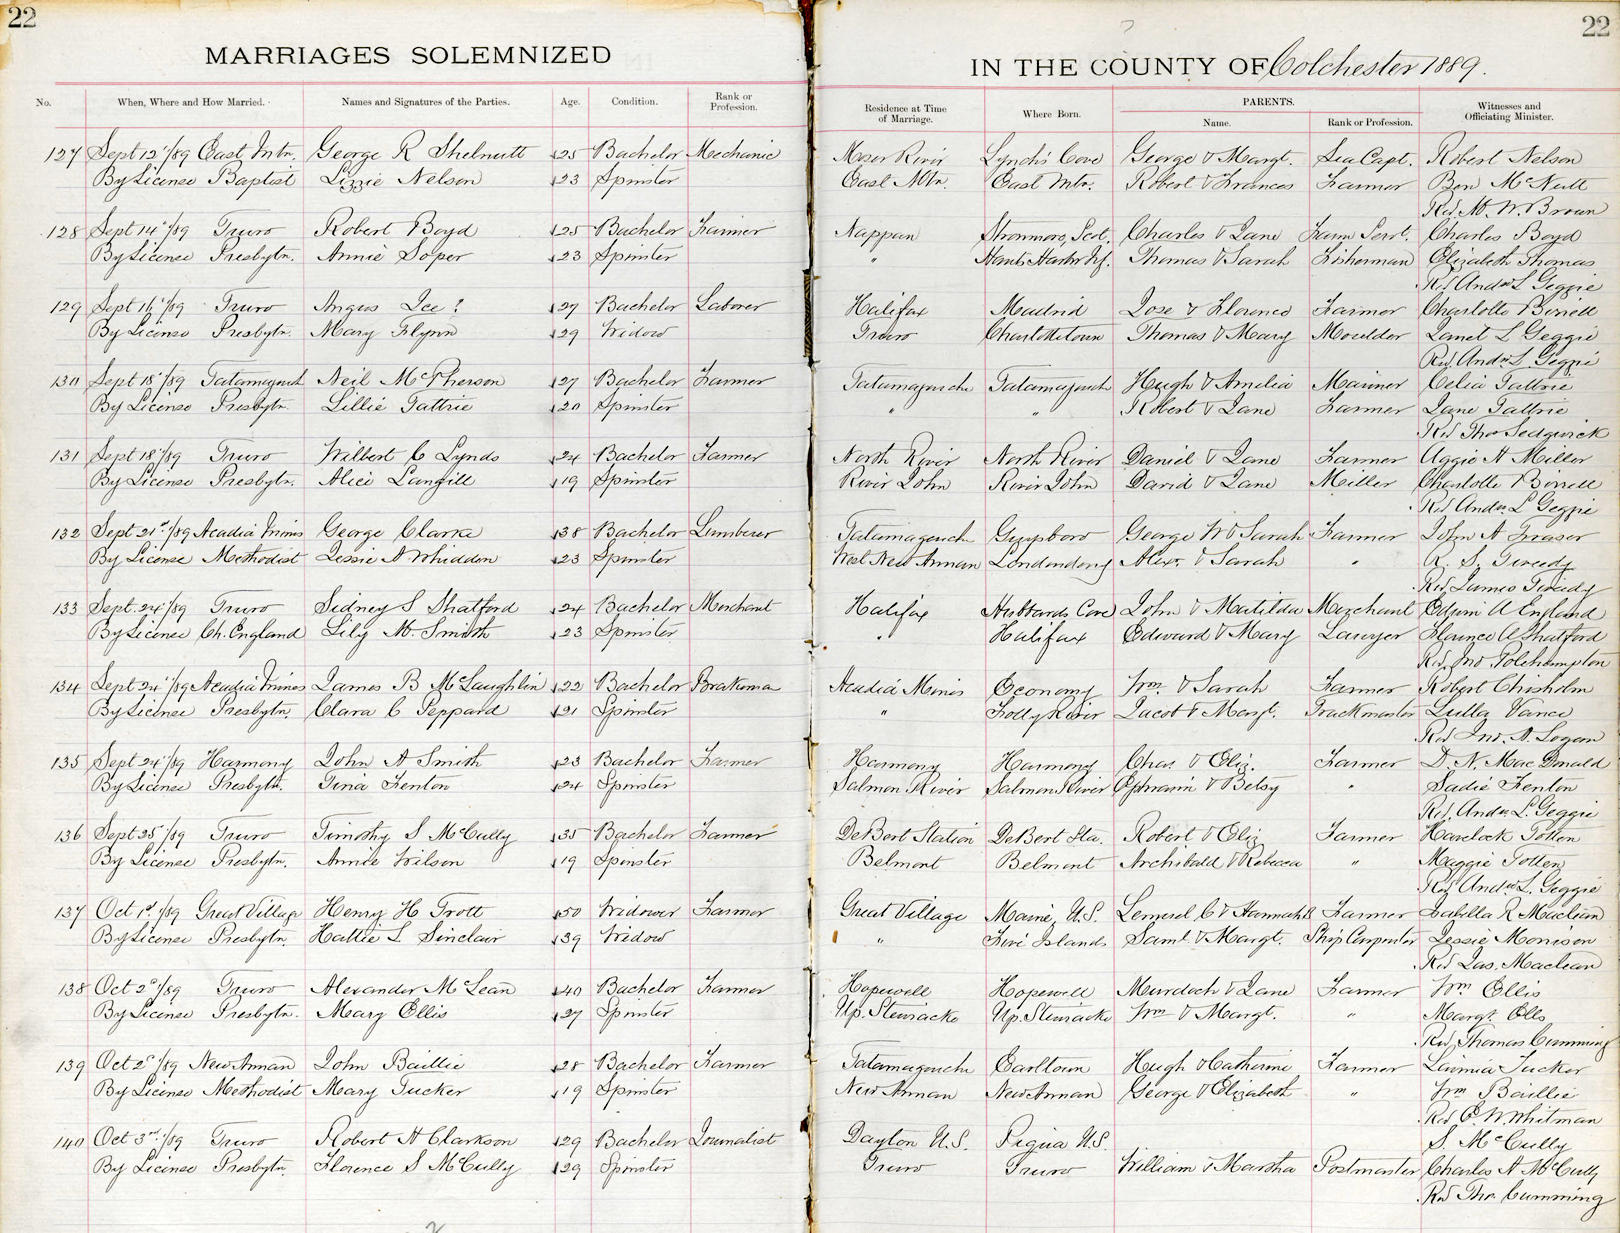 22
MARRIAGES SOLEMNIZED
No. When, Where and How Married. Names and Signatures of the Parties. Age. Condition. Rank or Profession.
127 Sept 12"/89 East Mtn. George R Shelnutt 25 Bachelor Mechanic
By License Baptist Lizzie Nelson 23 Spinster
128 Sept 14"/89 Truro Robert Boyd 25 Bachelor Farmer
By License Presbytn. Annie Soper 23 Spinster
129 Sept 16"/89 Truro Angus Ice? 27 Bachelor Laborer
By License Presbytn. Mary Flynn 29 Widow
130 Sept 18"/89 Tatamagouch Neil McPherson 27 Bachelor Farmer
By License Presbytn. Lillie Tattrie 20 Spinster
131 Sept 18"/89 Truro Wilbert C Lynds 24 Bachelor Farmer
By License Presbytn. Alice Langill 19 Spinster
132 Sept 21st/89 Acadia Mines George Clarke 38 Bachelor Lumberer
By License Methodist Jessie A Whidden 23 Spinster
133 Sept. 24"/89 Truro Sidney S Shatford 24 Bachelor Merchant
By License Ch. England Lily M. Smith 23 Spinster
134 Sept 24"/89 Acadia Mines James B McLaughlin 22 Bachelor Brakeman
By License Presbytn. Clara C Peppard 21 Spinster
135 Sept 24"/89 Harmony John A Smith 23 Bachelor Farmer
By License Presbytn. Tina Fenton 24 Spinster
136 Sept 25"/89 Truro Timothy S McCully 35 Bachelor Farmer
By License Presbytn. Annie Wilson 19 Spinster
137 Oct 1st/89 Great Village Henry H Trott 50 Widower Farmer
By License Presbytn. Hattie L Sinclair 39 Widow
138 Oct 2d/89 Truro Alexander McLean 40 Bachelor Farmer
By License Presbytn. Mary Ellis 27 Spinster
139 Oct 2d/89 New Annan John Baillie 28 Bachelor Farmer
By License Methodist Mary Tucker 19 Spinster
140 Oct 3rd/89 Truro Robert H Clarkson 29 Bachelor Journalist
By License Presbytn. Florence S McCully 29 Spinster
22
IN THE COUNTY OF Colchester 1889.
Residence at Time of Marriage. Where Born. PARENTS. Name. Rank or Profession. Witnesses and Officiating Minister.
Moser River Lynch's Cove George & Margt. Sea Capt. Robert Nelson
East Mtn. East Mtn. Robert & Frances Farmer Ben McNutt
Rev. M. W. Brown
Nappan Scot. Charles & Jane Farm Servt. Charles Boyd
" Hants Harbor Nf. Thomas & Sarah Fisherman Elizabeth Thomas
Rev Andw L Geggie
Halifax Madrid Jose & Florence Farmer Charlotte Birrell
Truro Charlottetown Thomas & Mary Moulder Janet L Geggie
Rev. Andw. L. Geggie
Tatamagouche Tatamagouch Hugh & Amelia Mariner Celia Tattrie
" " Robert & Jane Farmer Jane Tattrie
Rev Thos Sedgwick
North River North River Daniel & Jane Farmer Aggie H Miller
River John River John David & Jane Miller Charlotte Birrell
Rev Andw. L Geggie
Tatamagouche Guysboro George W & Sarah Farmer John A Fraser
West New Annan Londonderry Alexr. & Sarah " R. S. Tweedy
Rev James Tweedy
Halifax Hubbards Cove John & Matilda Merchant Edwin A England
" Halifax Edward & Mary Lawyer Florence A Shatford
Rev. Jno Polehampton
Acadia Mines Economy Wm. & Sarah Farmer Robert Chisholm
" Folly River Jacob & Margt. Trackmaster Lulla Vance
Rev Jno. A. Logan
Harmony Harmony Chas. & Eliz. Farmer D. N. MacDonald
Salmon River Salmon River Ephraim & Betsy " Sadie Fenton
Rev. Andw. L. Geggie
DeBert Station DeBert Sta. Robert & Eliz Farmer Havelock Totten
Belmont Belmont Archibald & Rebecca " Maggie Totten
Rev Andw L. Geggie
Great Village Maine, U.S. Lemuel C & Hannah B Farmer Isabella R Maclean
" Five Islands Saml. & Margt. Ship Carpenter Jessie Morrison
Rev Jas. Maclean
Hopewell Hopewell Murdoch & Jane Farmer Wm Ellis
Up. Stewiacke Up. Stewiacke Wm & Margt. " Margt. Ells
Rev Thomas Cumming
Tatamagouche Earltown Hugh & Catherine Farmer Lavinia Tucker
New Annan New Annan George & Elizabeth " Wm Baillie
Rev C. W. Whitman
Dayton U.S. Piqua U.S. S McCully
Truro Truro William & Martha Postmaster Charles A McCully
Rev Thos. Cumming